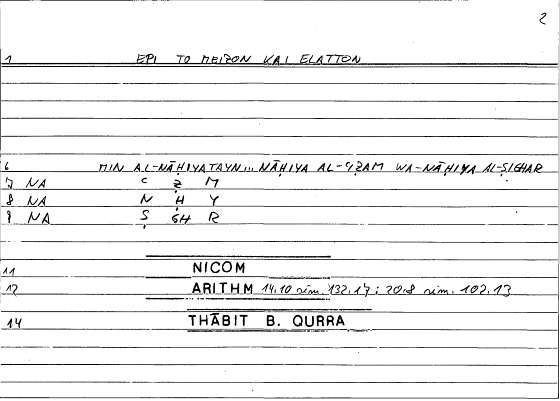 2
1 EPI TO MEIZON KAI ELATTON
6 MIN AL-NĀḤIYATAYN... NĀḤIYA AL-ʿIẒAM WA-NĀḤIYA AL-ṢIGHAR
7 NA C Ẓ M
8 NA N Ḥ Y
9 NA Ṣ GH R
11 NICOM
12 ARITHM 14.10 sim. 132.17; 20.8 sim. 102.13
14 THĀBIT B. QURRA